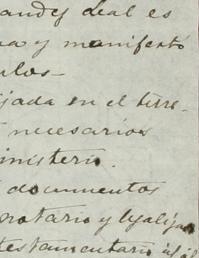 andes leal es
na y manifestó
ulos-
ijada en el terre-
necesarios
inisterio.
documentos
notario y legaliza
testamentario